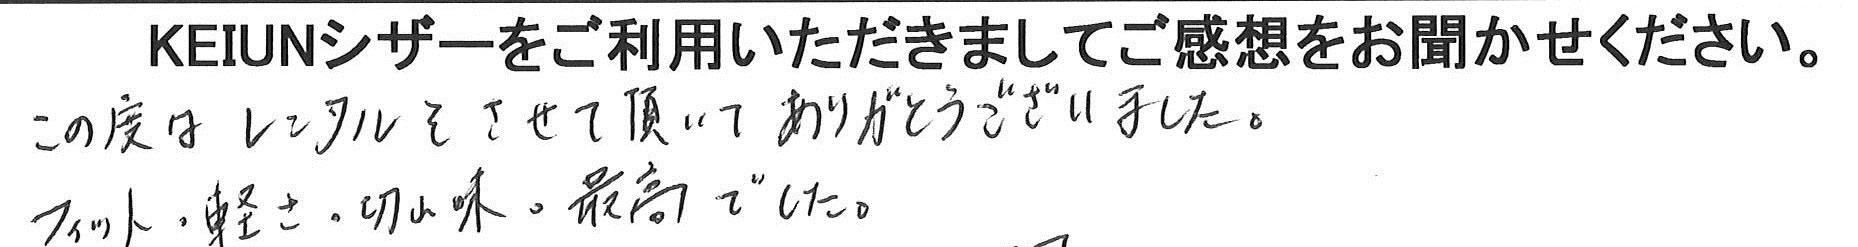 KEIUNシザーをご利用いただきましてご感想をお聞かせください。
この度は レンタルをさせて頂いて ありがとうございました。
フィット・軽さ・切れ味。最高でした。